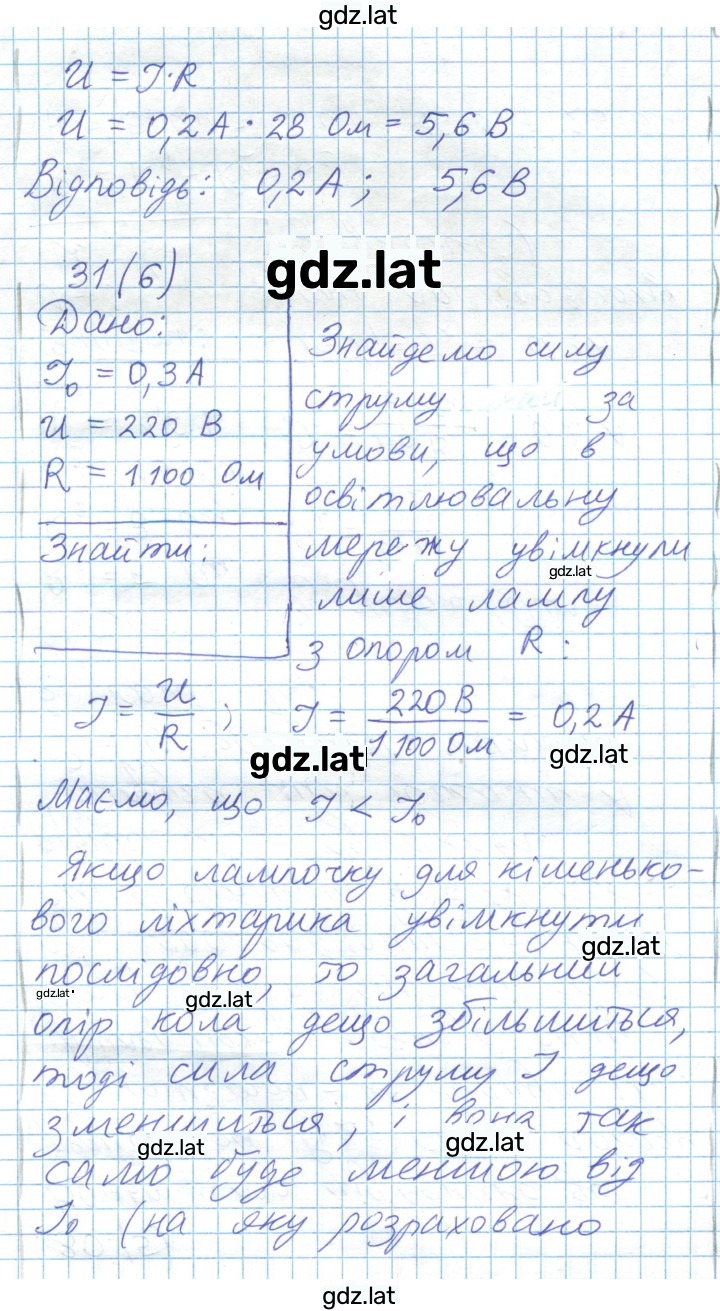 gdz.lat
U = I·R
U = 0,2 А · 28 Ом = 5,6 В
Відповідь: 0,2 А; 5,6 В
31(6)
gdz.lat
Дано:
I₀ = 0,3 А
U = 220 В
R = 1 100 Ом
Знайти:
Знайдемо силу
струму за
умови, що в
освітлювальну
мережу увімкнули
gdz.lat
лише лампу
з опором R:
I = U/R ; I = 220 В/1 100 Ом = 0,2 А
gdz.lat
gdz.lat
Маємо, що I < I₀
Якщо лампочку для кишенько-
вого ліхтарика увімкнути
gdz.lat
послідовно, то загальний
gdz.lat
gdz.lat
опір кола дещо збільшиться,
тоді сила струму I дещо
зменшиться, і вона так
gdz.lat
gdz.lat
само буде меншою від
I₀ (на яку розраховано
gdz.lat